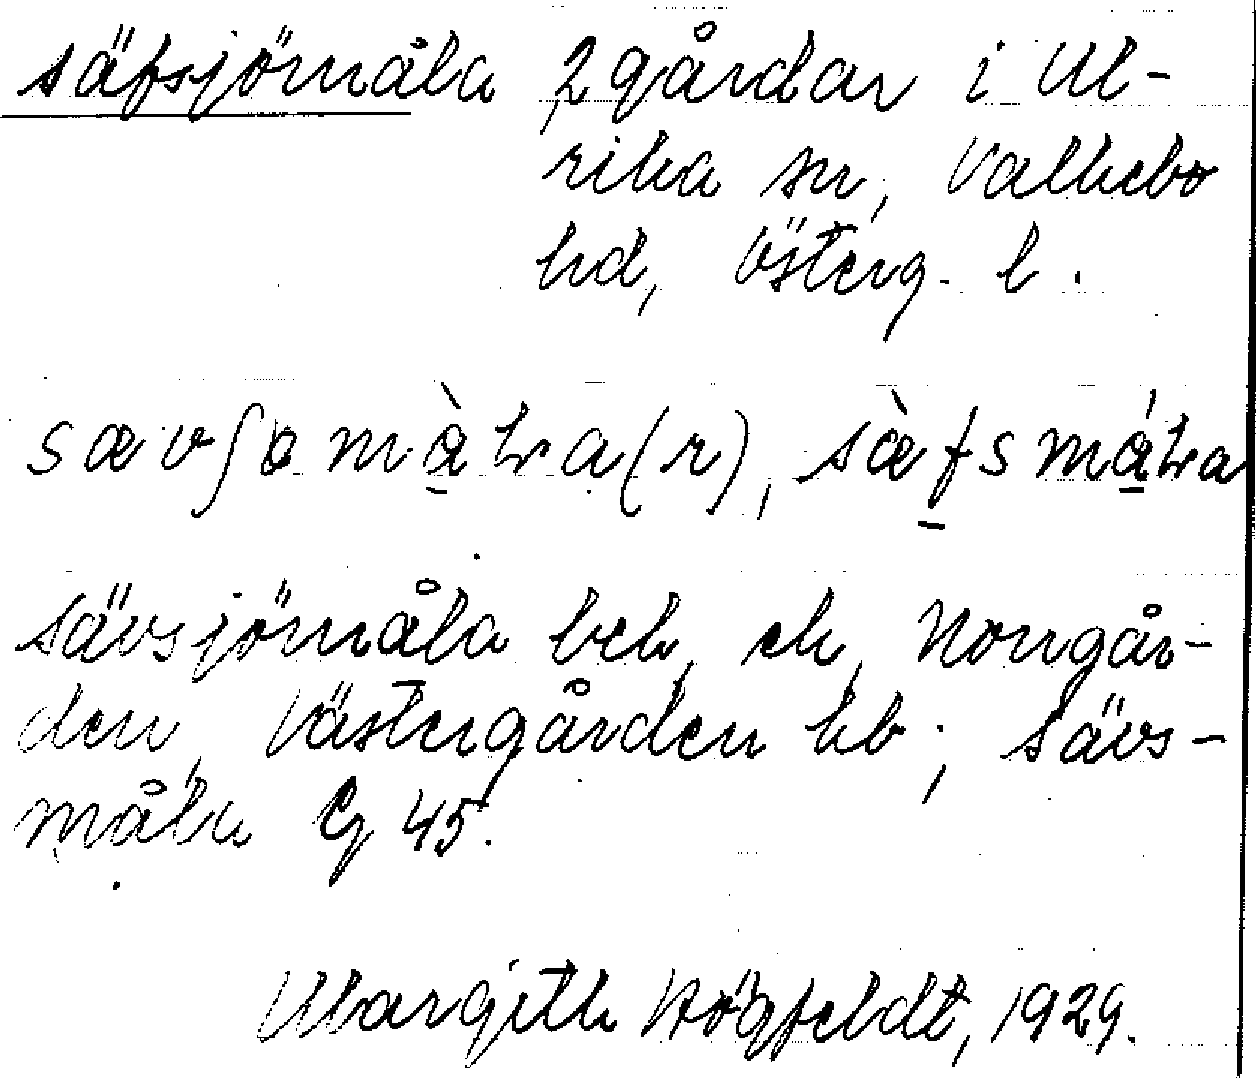 säfsjömåla 2 gårdar i Ul-
rika sn, Valkebo
hd, Österg. l.
sævʃomàla(r), sæ̀fsmála
Sävsjömåla bek, ek, Norrgår-
den, Västergården hb; Sävs-
måla G 45.
Margith Högfeldt, 1929.